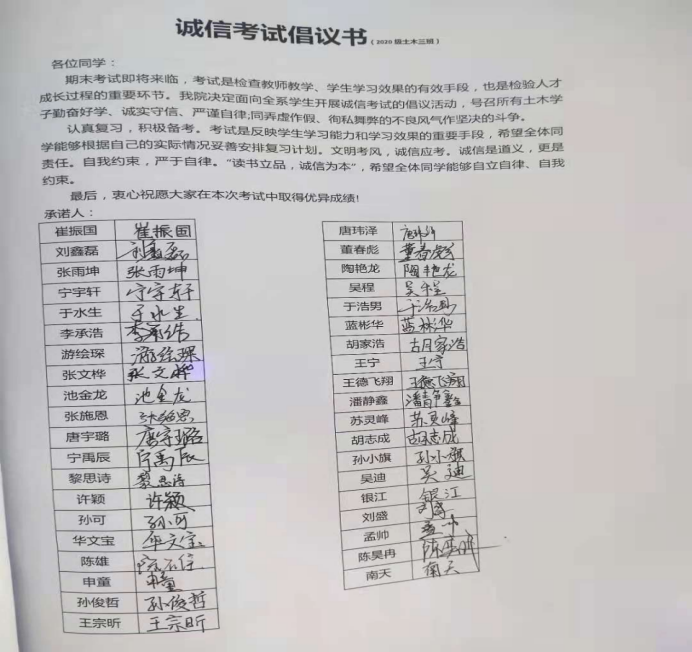 诚信考试倡议书（2020级土木三班）
各位同学：
期末考试即将来临，考试是检查教师教学、学生学习效果的有效手段，也是检验人才
成长过程的重要环节。我院决定面向全系学生开展诚信考试的倡议活动，号召所有土木学
子勤奋好学、诚实守信、严谨自律;同弄虚作假、徇私舞弊的不良风气作坚决的斗争。
认真复习，积极备考。考试是反映学生学习能力和学习效果的重要手段，希望全体同
学能够根据自己的实际情况妥善安排复习计划。文明考风，诚信应考。诚信是道义，更是
责任。自我约束，严于自律。“读书立品，诚信为本”，希望全体同学能够自立自律、自我
约束。
最后，衷心祝愿大家在本次考试中取得优异成绩!
承诺人：
崔振国 崔振国
刘鑫磊 刘鑫磊
张雨坤 张雨坤
宁宇轩 宁宇轩
于水生 于水生
李承浩 李承浩
游绘琛 游绘琛
张文桦 张文桦
池金龙 池金龙
张施恩 张施恩
唐宇璐 唐宇璐
宁禹辰 宁禹辰
黎思诗 黎思诗
许颖 许颖
孙可 孙可
华文宝 华文宝
陈雄
申童 申童
孙俊哲 孙俊哲
王宗昕 王宗昕
唐玮泽
董春彪 董春彪
陶艳龙 陶艳龙
吴程 吴程
于浩男 于浩男
蓝彬华 蓝彬华
胡家浩 胡家浩
王宁 王宁
王德飞翔 王德飞翔
潘静鑫 潘静鑫
苏灵峰 苏灵峰
胡志成 胡志成
孙小旗 孙小旗
吴迪 吴迪
银江 银江
刘盛 刘盛
孟帅 孟帅
陈昊冉
南天 南天